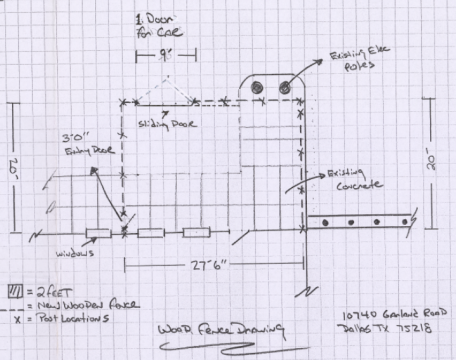 1 Door
For CAR
9'
Existing Elec
Poles
Sliding Door
3'0"
Entry Door
20'
20'
Existing
Concrete
windows
27'6"
= 2 FEET
= New Wooden Fence
x = Post Locations
Wood Fence Drawing
10740 Garland Road
Dallas TX 75218